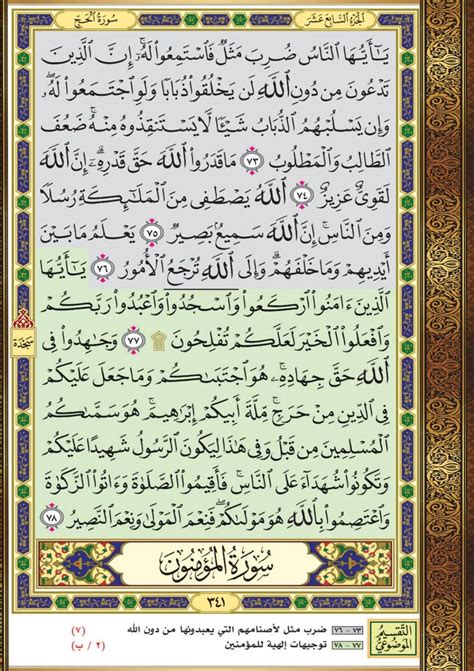 الجزء السابع عشر
سورة الحج
يَـٰٓأَيُّهَا ٱلنَّاسُ ضُرِبَ مَثَلٌ فَٱسْتَمِعُوا۟ لَهُۥٓ ۚ إِنَّ ٱلَّذِينَ
تَدْعُونَ مِن دُونِ ٱللَّهِ لَن يَخْلُقُوا۟ ذُبَابًا وَلَوِ ٱجْتَمَعُوا۟ لَهُۥ ۖ
وَإِن يَسْلُبْهُمُ ٱلذُّبَابُ شَيْـًٔا لَّا يَسْتَنقِذُوهُ مِنْهُ ۚ ضَعُفَ
ٱلطَّالِبُ وَٱلْمَطْلُوبُ ٧٣ مَا قَدَرُوا۟ ٱللَّهَ حَقَّ قَدْرِهِۦٓ ۗ إِنَّ ٱللَّهَ
لَقَوِىٌّ عَزِيزٌ ٧٤ ٱللَّهُ يَصْطَفِى مِنَ ٱلْمَلَـٰٓئِكَةِ رُسُلًا
وَمِنَ ٱلنَّاسِ ۚ إِنَّ ٱللَّهَ سَمِيعٌۢ بَصِيرٌ ٧٥ يَعْلَمُ مَا بَيْنَ
أَيْدِيهِمْ وَمَا خَلْفَهُمْ ۗ وَإِلَى ٱللَّهِ تُرْجَعُ ٱلْأُمُورُ ٧٦ يَـٰٓأَيُّهَا
ٱلَّذِينَ ءَامَنُوا۟ ٱرْكَعُوا۟ وَٱسْجُدُوا۟ وَٱعْبُدُوا۟ رَبَّكُمْ
وَٱفْعَلُوا۟ ٱلْخَيْرَ لَعَلَّكُمْ تُفْلِحُونَ ۩ ٧٧ وَجَـٰهِدُوا۟ فِى
سجدة
ٱللَّهِ حَقَّ جِهَادِهِۦ ۚ هُوَ ٱجْتَبَىٰكُمْ وَمَا جَعَلَ عَلَيْكُمْ
فِى ٱلدِّينِ مِنْ حَرَجٍ ۚ مِّلَّةَ أَبِيكُمْ إِبْرَٰهِيمَ ۚ هُوَ سَمَّىٰكُمُ
ٱلْمُسْلِمِينَ مِن قَبْلُ وَفِى هَـٰذَا لِيَكُونَ ٱلرَّسُولُ شَهِيدًا عَلَيْكُمْ
وَتَكُونُوا۟ شُهَدَآءَ عَلَى ٱلنَّاسِ ۚ فَأَقِيمُوا۟ ٱلصَّلَوٰةَ وَءَاتُوا۟ ٱلزَّكَوٰةَ
وَٱعْتَصِمُوا۟ بِٱللَّهِ هُوَ مَوْلَىٰكُمْ ۖ فَنِعْمَ ٱلْمَوْلَىٰ وَنِعْمَ ٱلنَّصِيرُ ٧٨
سورة المؤمنون
٣٤١
التقسيم الموضوعي
٧٣ - ٧٦ ضرب مثل لأصنامهم التي يعبدونها من دون الله (٧)
٧٧ - ٧٨ توجيهات إلهية للمؤمنين (٢ / ب)